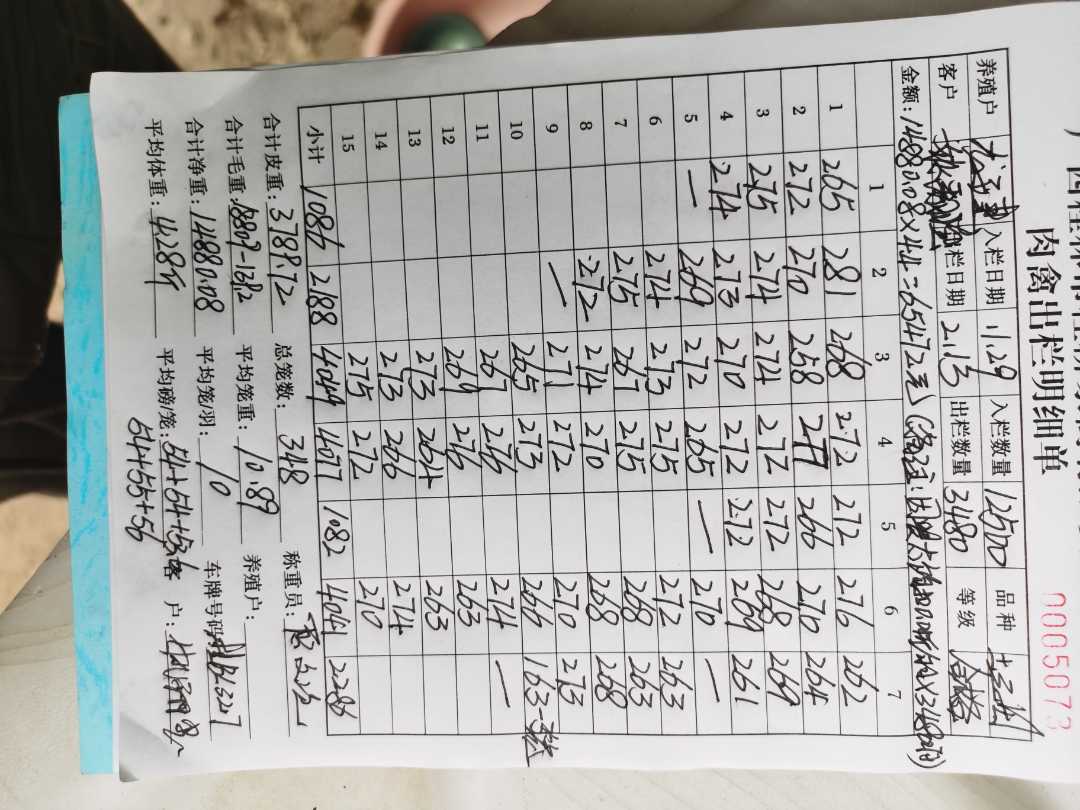 肉禽出栏明细单
0005073
养殖户 入栏日期 1.29 入栏数量 12500 品种
客户 出栏日期 2.13 出栏数量 3480 等级 合格
金额:14880.08×4.4=65472元
1 2 3 4 5 6 7
1 265 281 268 272 272 276 262
2 272 270 258 277 266 270 264
3 275 274 274 272 272 268 269
4 274 273 270 272 272 269 261
5 — 269 272 265 — 270 —
6 274 273 275 272 263
7 275 267 275 268 263
8 272 274 270 268 268
9 — 271 272 270 273
10 265 273 266 163
11 267 266 274 —
12 269 276 263
13 273 264 263
14 273 266 274
15 275 272 270
小计 1086 2188 4049 4077 1082 4041 2286
合计皮重:3789.72 总笼数:348 称重员:
合计毛重:18809 平均笼重:10.89 养殖户:
合计净重:14880.08 平均笼羽:10 车牌号码:
平均体重:4.28斤 平均磅/笼:54+54+56 客户:
54+55+56